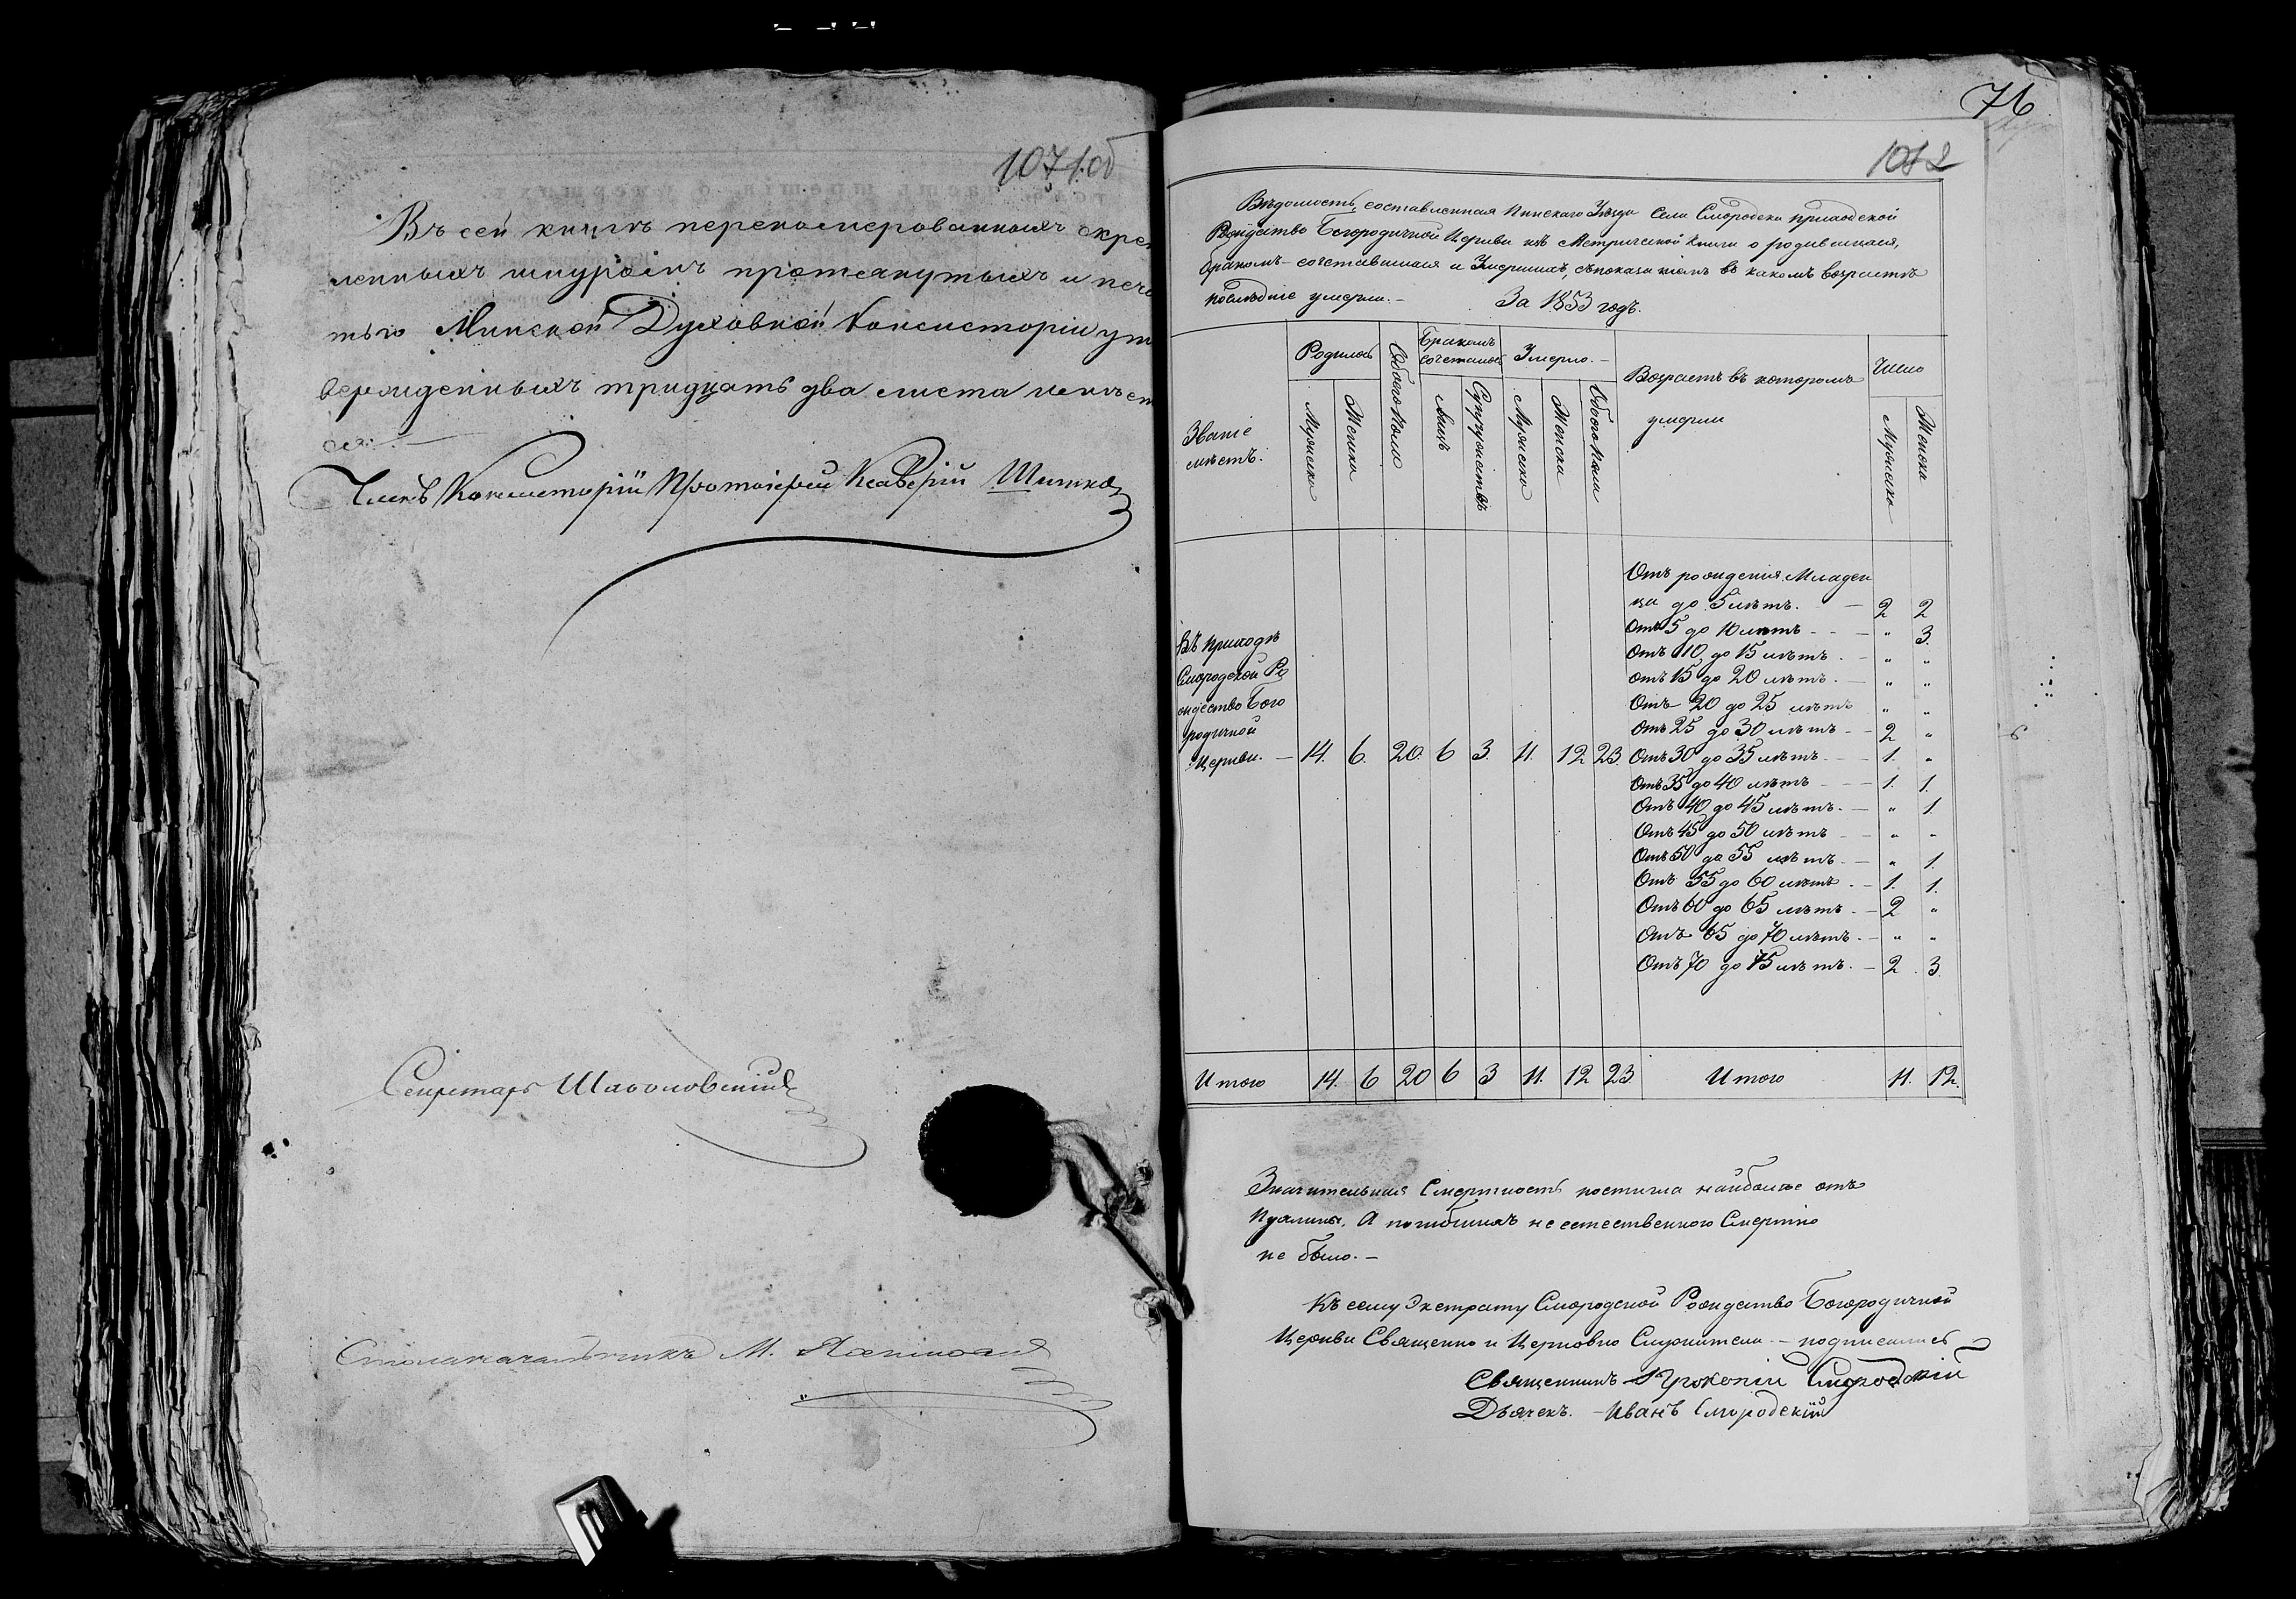 1071.об
Въ сей книгѣ перенолмерованныхъ скре
пленныхъ шнуромъ протянутыхъ и печа
тью Минской Духовной Консисторіи ут
вержденныхъ тридцать два листа имѣет
ся. —
Членъ Консисторіи Протоіерей Ксаверій Шишко
Секретарь
Столоначальникъ М.
76
Вѣдомость, составленная Пинскаго Уѣзда Села Смородска приходской
Рождество Богородичной Церкви изъ Метрической Книги о родившихся,
бракомъ-сочетавшихся и Умершихъ, съ показаніемъ въ какомъ возрастѣ
послѣдніе умерли. — За 1853 годъ.
Званіе мѣстъ. Родилось Обоего пола Бракомъ сочеталось Умерло. — Возрастъ въ которомъ умерли Число
Мужеска Женска Лицъ Супружествъ Мужеска Женска Обоего пола Мужеска Женска
Отъ рожденія Младен
ца до 5 лѣтъ. — 2 2
Отъ 5 до 10 лѣтъ - - — „ 3.
Отъ 10 до 15 лѣтъ. — „ „
отъ 15 до 20 лѣтъ. — „ „
Отъ 20 до 25 лѣтъ „ „
Отъ 25 до 30 лѣтъ - - 2 „
Въ приходѣ
Смородской Ро
ждество Бого
родичной
Церкви. — 14. 6. 20. 6 3. 11. 12 23. Отъ 30 до 35 лѣтъ - — 1. „
Отъ 35 до 40 лѣтъ - — 1. 1.
Отъ 40 до 45 лѣтъ. — „ 1.
Отъ 45 до 50 лѣтъ - — „ „
Отъ 50 до 55 лѣтъ. — „ 1.
Отъ 55 до 60 лѣтъ. — 1. 1.
Отъ 60 до 65 лѣтъ. — 2 „
Отъ 65 до 70 лѣтъ. — „ „
Отъ 70 до 75 лѣтъ. — 2. 3.
Итого 14. 6 20 6 3 11. 12 23. Итого 11. 12.
Значительная Смертность постигла наиболѣе отъ
А погибшихъ не естественною Смертію
не было. —
Къ сему Экстракту Смородской Рождество Богородичной
Церкви Священно и Церковно Служители — подписались
Священникъ Прокопій Смородскій
Дьячекъ. — Иванъ Смородскій